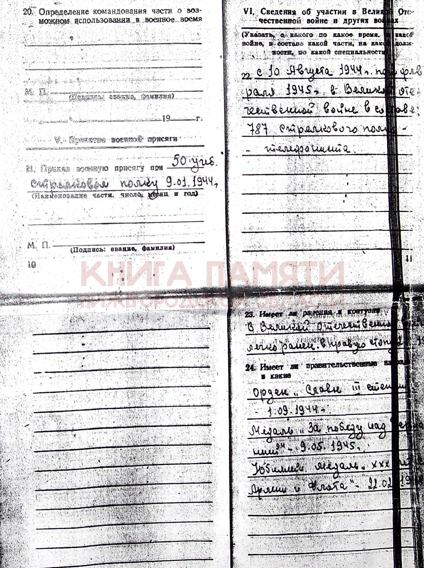 20. Определение командования части о воз-
можном использовании в военное время
М. П.
(Подпись: звание, фамилия)
19 г.
V. Принятие военной присяги
21. Принял военную присягу при 50 уч.
стрелковом полку 9.01.1944г.
(Наименование части, число, месяц и год)
М. П.
(Подпись: звание, фамилия)
10
VI. Сведения об участии в Великой Оте-
чественной войне и других войнах
(Указать, с какого по какое время, в какой
войне, в составе какой части, на какой долж-
ности, по какой специальности)
22 с 10 Августа 1944г. по фев
раля 1945г. в Великой оте
чественной войне в составе
787 стрелкового полка -
- телефониста
11
КНИГА ПАМЯТИ
НИЖЕГОРОДСКОЙ ОБЛАСТИ
23. Имеет ли ранения и контузии
В Великой отечественной
легко ранен в правую стопу
24. Имеет ли правительственные
и какие
Орден "Славы III степени
- 1.09.1944г.
Медаль "За победу над
нией" - 9.05.1945г.
Юбилейн медаль "XXX лет
Армии и Флота" - 22.02.